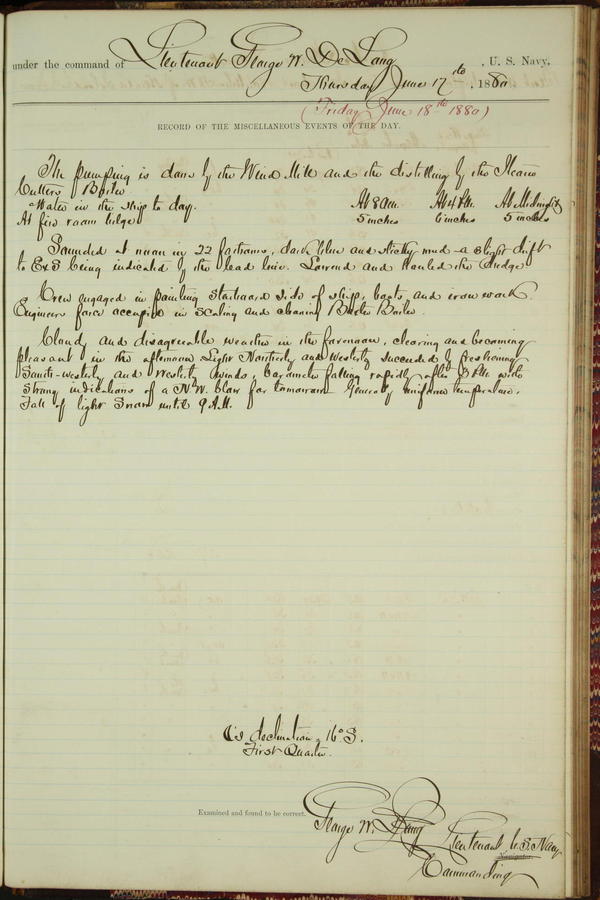 under the command of Lieutenant George W. De Long, U. S. Navy,
Thursday June 17th, 1880
(Friday June 18th 1880)
RECORD OF THE MISCELLANEOUS EVENTS OF THE DAY.
The pumping is done by the Wind Mill and the distilling by the Steam
Cutters Boiler
Water in the ship to day. At 8 AM. At 4 PM. At Midnight
At fire room bilge 5 inches 6 inches 5 inches
Sounded at noon in 22 fathoms, dark blue and sticky mud - a slight drift
to E x S being indicated by the lead line. Lowered and hauled the dredge
Crew engaged in painting starboard side of ship, boats and iron work.
Engineers force occupied in scaling and cleaning Boiler.
Cloudy and disagreeable weather in the forenoon, clearing and becoming
pleasant in the afternoon Light Northerly and westerly succeeded by freshening
South-westerly and Westerly winds, barometer falling rapidly after 8 PM. with
strong indications of a N.W. blow for tomorrow Generally uniform temperature.
Fall of light Snow until 9 A.M.
☾'s declination 16° S.
First Quarter.
Examined and found to be correct.
George W. De Long Lieutenant U. S. Navy
Commanding